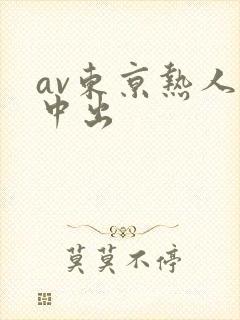 av东京热人
中出
莫莫不停